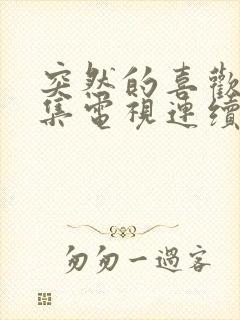 突然的喜歡
集電視連續
匆匆一過客